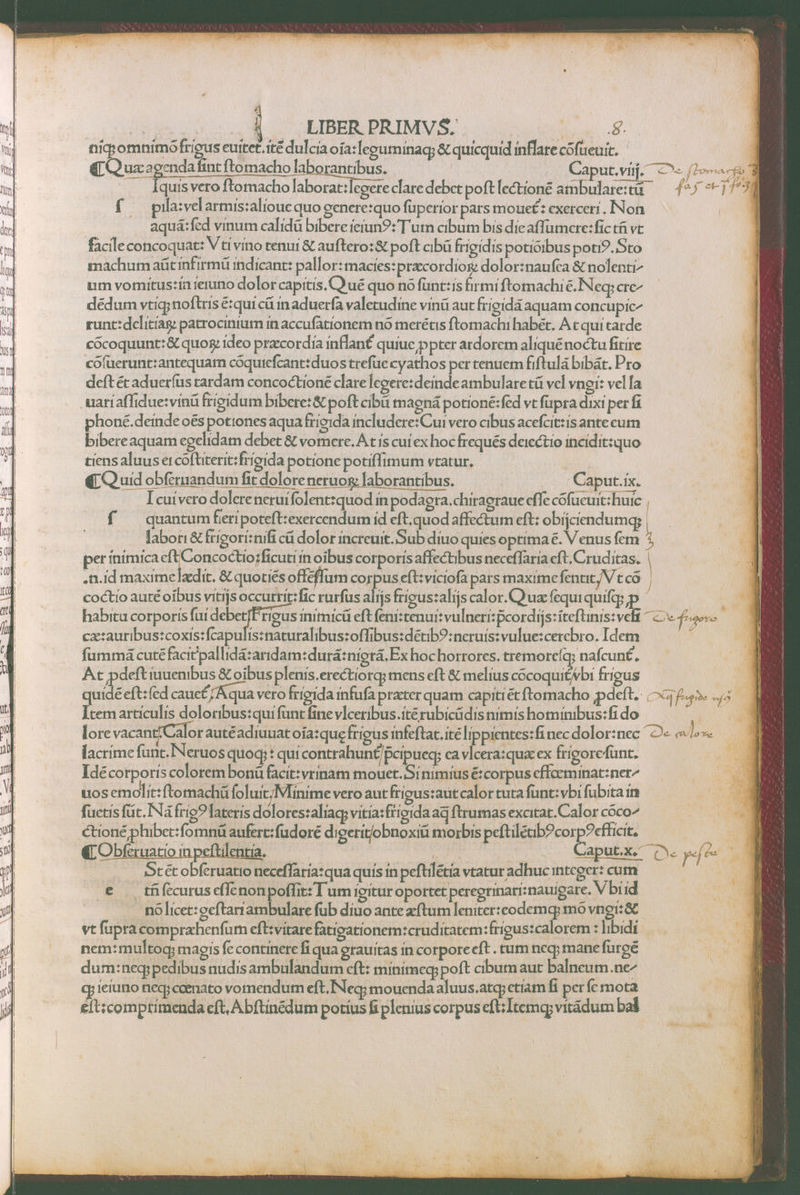 LIBER PRIMVS. .8.
niq; omnimo frigus euitet.ité dulcia oía:leguminaq; & quicquid inflare cōfueuit.
⸿ Quæ agenda sint stomacho laborantibus. Caput.viij.
Iquis vero stomacho laborat:legere clare debet post lectionē ambulare:tū
ſ pila:vel armis:alioue quo genere:quo superior pars mouet᷑: exerceri. Non
aquā:sed vinum calidū bibere ieiunꝰ:Tum cibum bis die assumere:sic tñ vt
facile concoquat: Vti vino tenui & austero:& post cibū frigidis potiōibus potiꝰ.Sto
machum aūt infirmū indicant: pallor:macies:præcordioꝝ dolor:nausea & nolenti-
um vomitus:in ieiuno dolor capitis.Qué quo nō sunt:is firmi stomachi ē.Neq; cre-
dēdum vtiq; nostris ē:qui cū in aduersa valetudine vinū aut frigidā aquam concupie-
runt:delitiaꝝ patrocinium in accusationem nō merētis stomachi habēt. At qui tarde
cōcoquunt:& quoꝝ ideo præcordia inflant᷑ quiue ꝓpter ardorem aliquē noctu sitire
cōsuerunt:antequam cōquiescant:duos tresue cyathos per tenuem fistulā bibāt. Pro
dest ēt aduersus tardam concoctionē clare legere:deinde ambulare tū vel vngi: vel la
uari assidue:vinū frigidum bibere:& post cibū magnā potionē:sed vt supra dixi per si
phonē.deinde oēs potiones aqua frigida includere:Cui vero cibus acescit:is ante eum
bibere aquam egelidam debet & vomere.At is cui ex hoc frequēs deiectio incidit:quo
tiens aluus ei cōstiterit:frigida potione potissimum vtatur.
⸿ Quid obseruandum sit dolore neruoꝝ laborantibus. Caput.ix.
I cui vero dolere nerui solent:quod in podagra.chiragraue esse cōsueuit:huic
ſ quantum fieri potest:exercendum id est.quod affectum est: obijciendumq;
labori & frigori:nisi cū dolor increuit.Sub diuo quies optima ē. Venus sem
per inimica est Concoctio:sicuti in oibus corporis affectibus necessaria est.Cruditas.
.n.id maxime lædit. & quotiēs offēssum corpus est:viciosa pars maxime sentit/Vt cō
coctio autē oībus vitijs occurrit:sic rursus alijs frigus:alijs calor.Quæ sequi quisq; ꝓ
habitu corporis sui debet/Frigus inimicū est seni:tenui:vulneri:p̄cordijs:itestinis:vesi
cæ:auribus:coxis:scapulis:naturalibus:ossibus:dētibꝰ:neruis:vuluæ:cerebro. Idem
summā cutē facit pallidā:aridam:durā:nigrā.Ex hoc horrores. tremoresq; nascunt᷑.
At ꝓdest iuuenibus & oibus plenis.erectiorq; mens est & melius cōcoquit᷑/vbi frigus
quidē est:sed cauet᷑/Aqua vero frigida infusa præter quam capiti ēt stomacho ꝓdest.
Item articulis doloribus:qui sunt sine vlceribus.itē rubicūdis nimis hominibus:si do
lore vacant/Calor autē adiuuat oīa:que frigus infestat.itē lippientes:si nec dolor:nec
lacrime sunt.Neruos quoq; : qui contrahunt᷑/p̄cipueq; ea vlcera:quæ ex frigore sunt.
Idē corporis colorem bonū facit:vrinam mouet.Si nimius ē:corpus effœminat:ner-
uos emolit:stomachū soluit./Minime vero aut frigus:aut calor tuta sunt:vbi subita in
suetis sūt.Nā frigꝰ lateris dolores:aliaq; vitia:frigida aq̄ strumas excitat.Calor cōco-
ctionē phibet:somnū aufert:sudorē digerit/obnoxiū morbis pestilētibꝰ corpꝰ efficit.
⸿ Obseruatio in pestilentia. Caput.x.
St ēt obseruatio necessaria:qua quis in pestilētia vtatur adhuc integer: cum
e tñ securus esse non possit:Tum igitur oportet peregrinari:nauigare. Vbi id
nō licet:gestari ambulare sub diuo ante æstum leniter:eodemq; mō vngi:&
vt supra compræhensum est:vitare fatigationem:cruditatem:frigus:calorem : libidi
nem:multoq; magis se continere si qua grauitas in corpore est. tum neq; mane surgē
dum:neq; pedibus nudis ambulandum est: minimeq; post cibum aut balneum.ne-
q; ieiuno neq; cœnato vomendum est.Neq; mouenda aluus.atq; etiam si per se mota
est:comprimenda est.Abstinēdum potius si plenius corpus est:Itemq; vitādum bal
De frigore
De calore
De peste